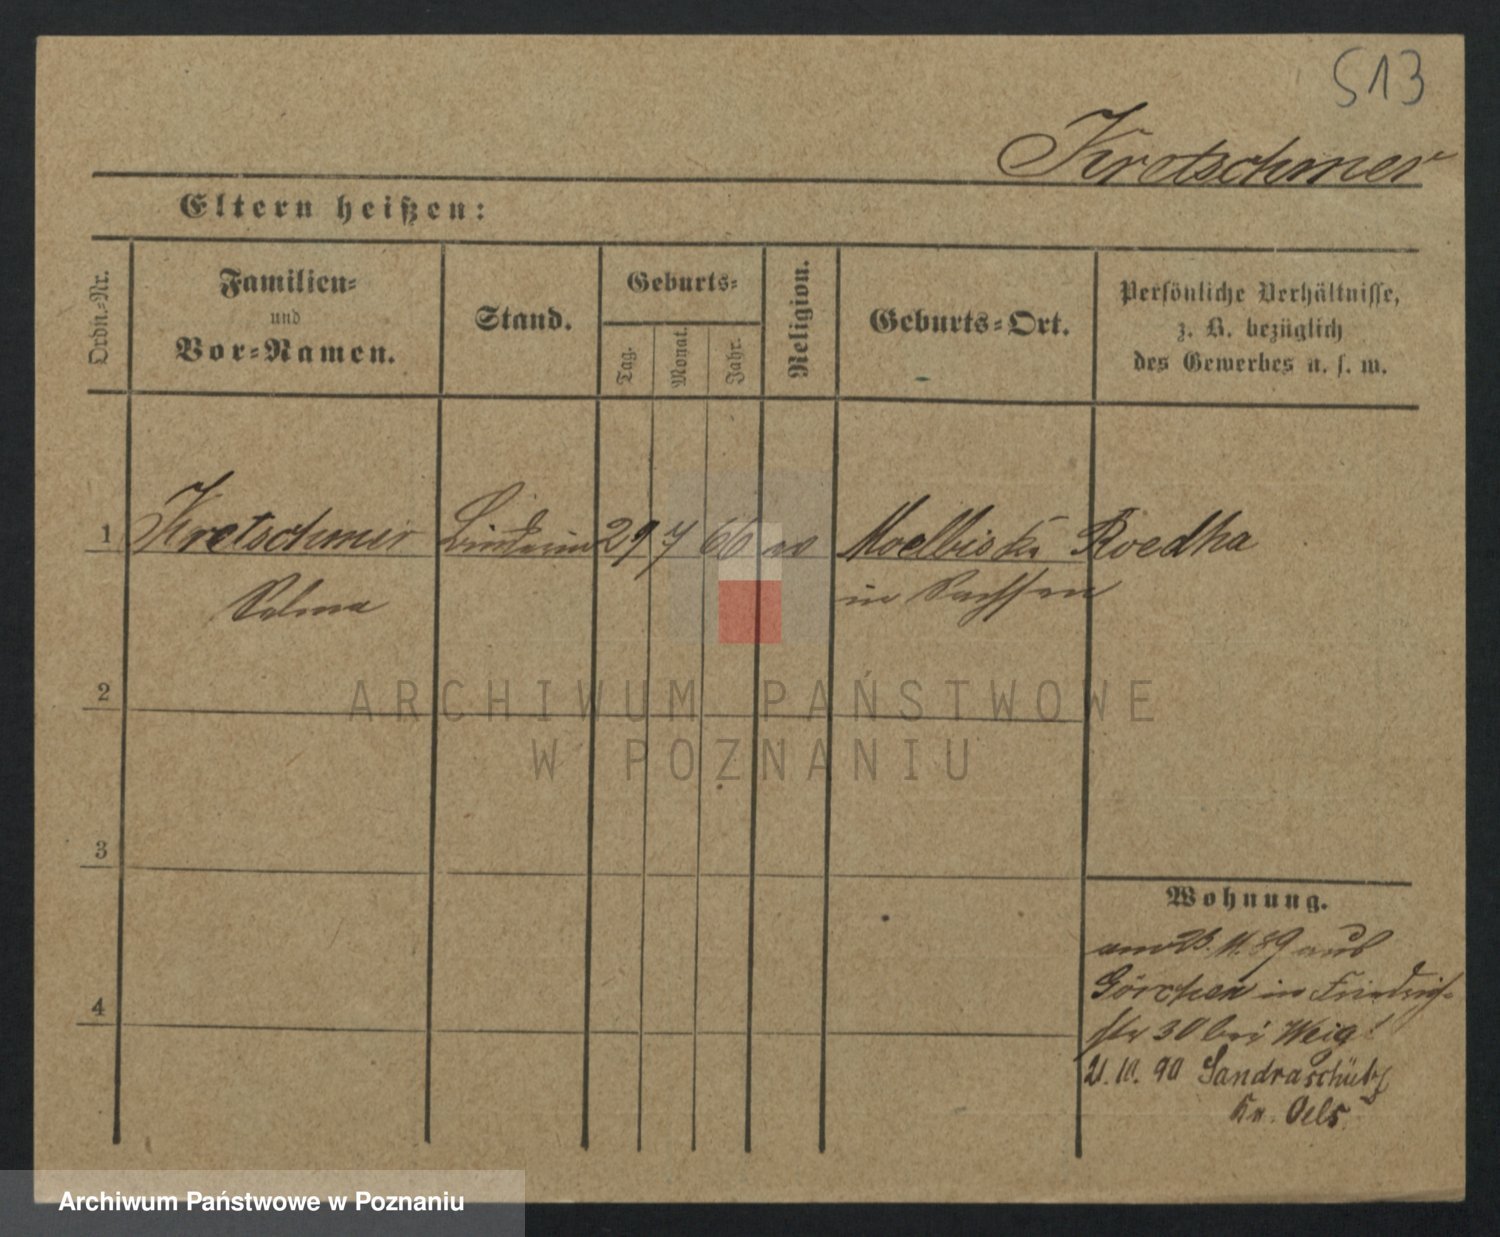 513
Kretschmer
Eltern heißen:
Ordn.-Nr.
Familien-
und
Vor-Namen.
Stand.
Geburts-
Tag.
Monat.
Jahr.
Religion.
Geburts-Ort.
Persönliche Verhältnisse,
z. B. bezüglich
des Gewerbes u. s. w.
1 Kretschmer 29 7 66 Moelbis Roedha
Selma in Sachsen
2
ARCHIWUM PAŃSTWOWE
W POZNANIU
3
4
Wohnung.
am 23.11.89 aus
Görchen in Friedrich-
str 30 bei Weigt
21.10.90 Sandraschütz
Kr. Oels.
Archiwum Państwowe w Poznaniu